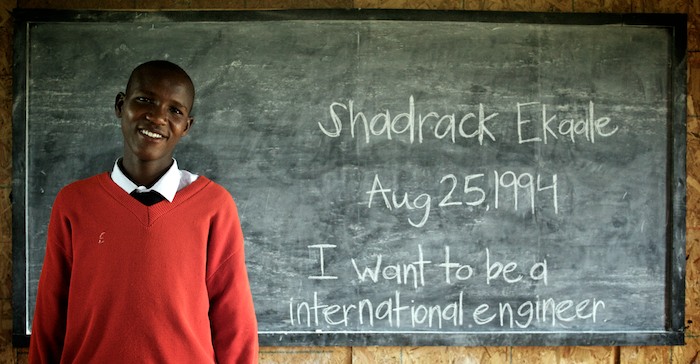 Shadrack Ekaale
Aug 25, 1994
I want to be a
international engineer.